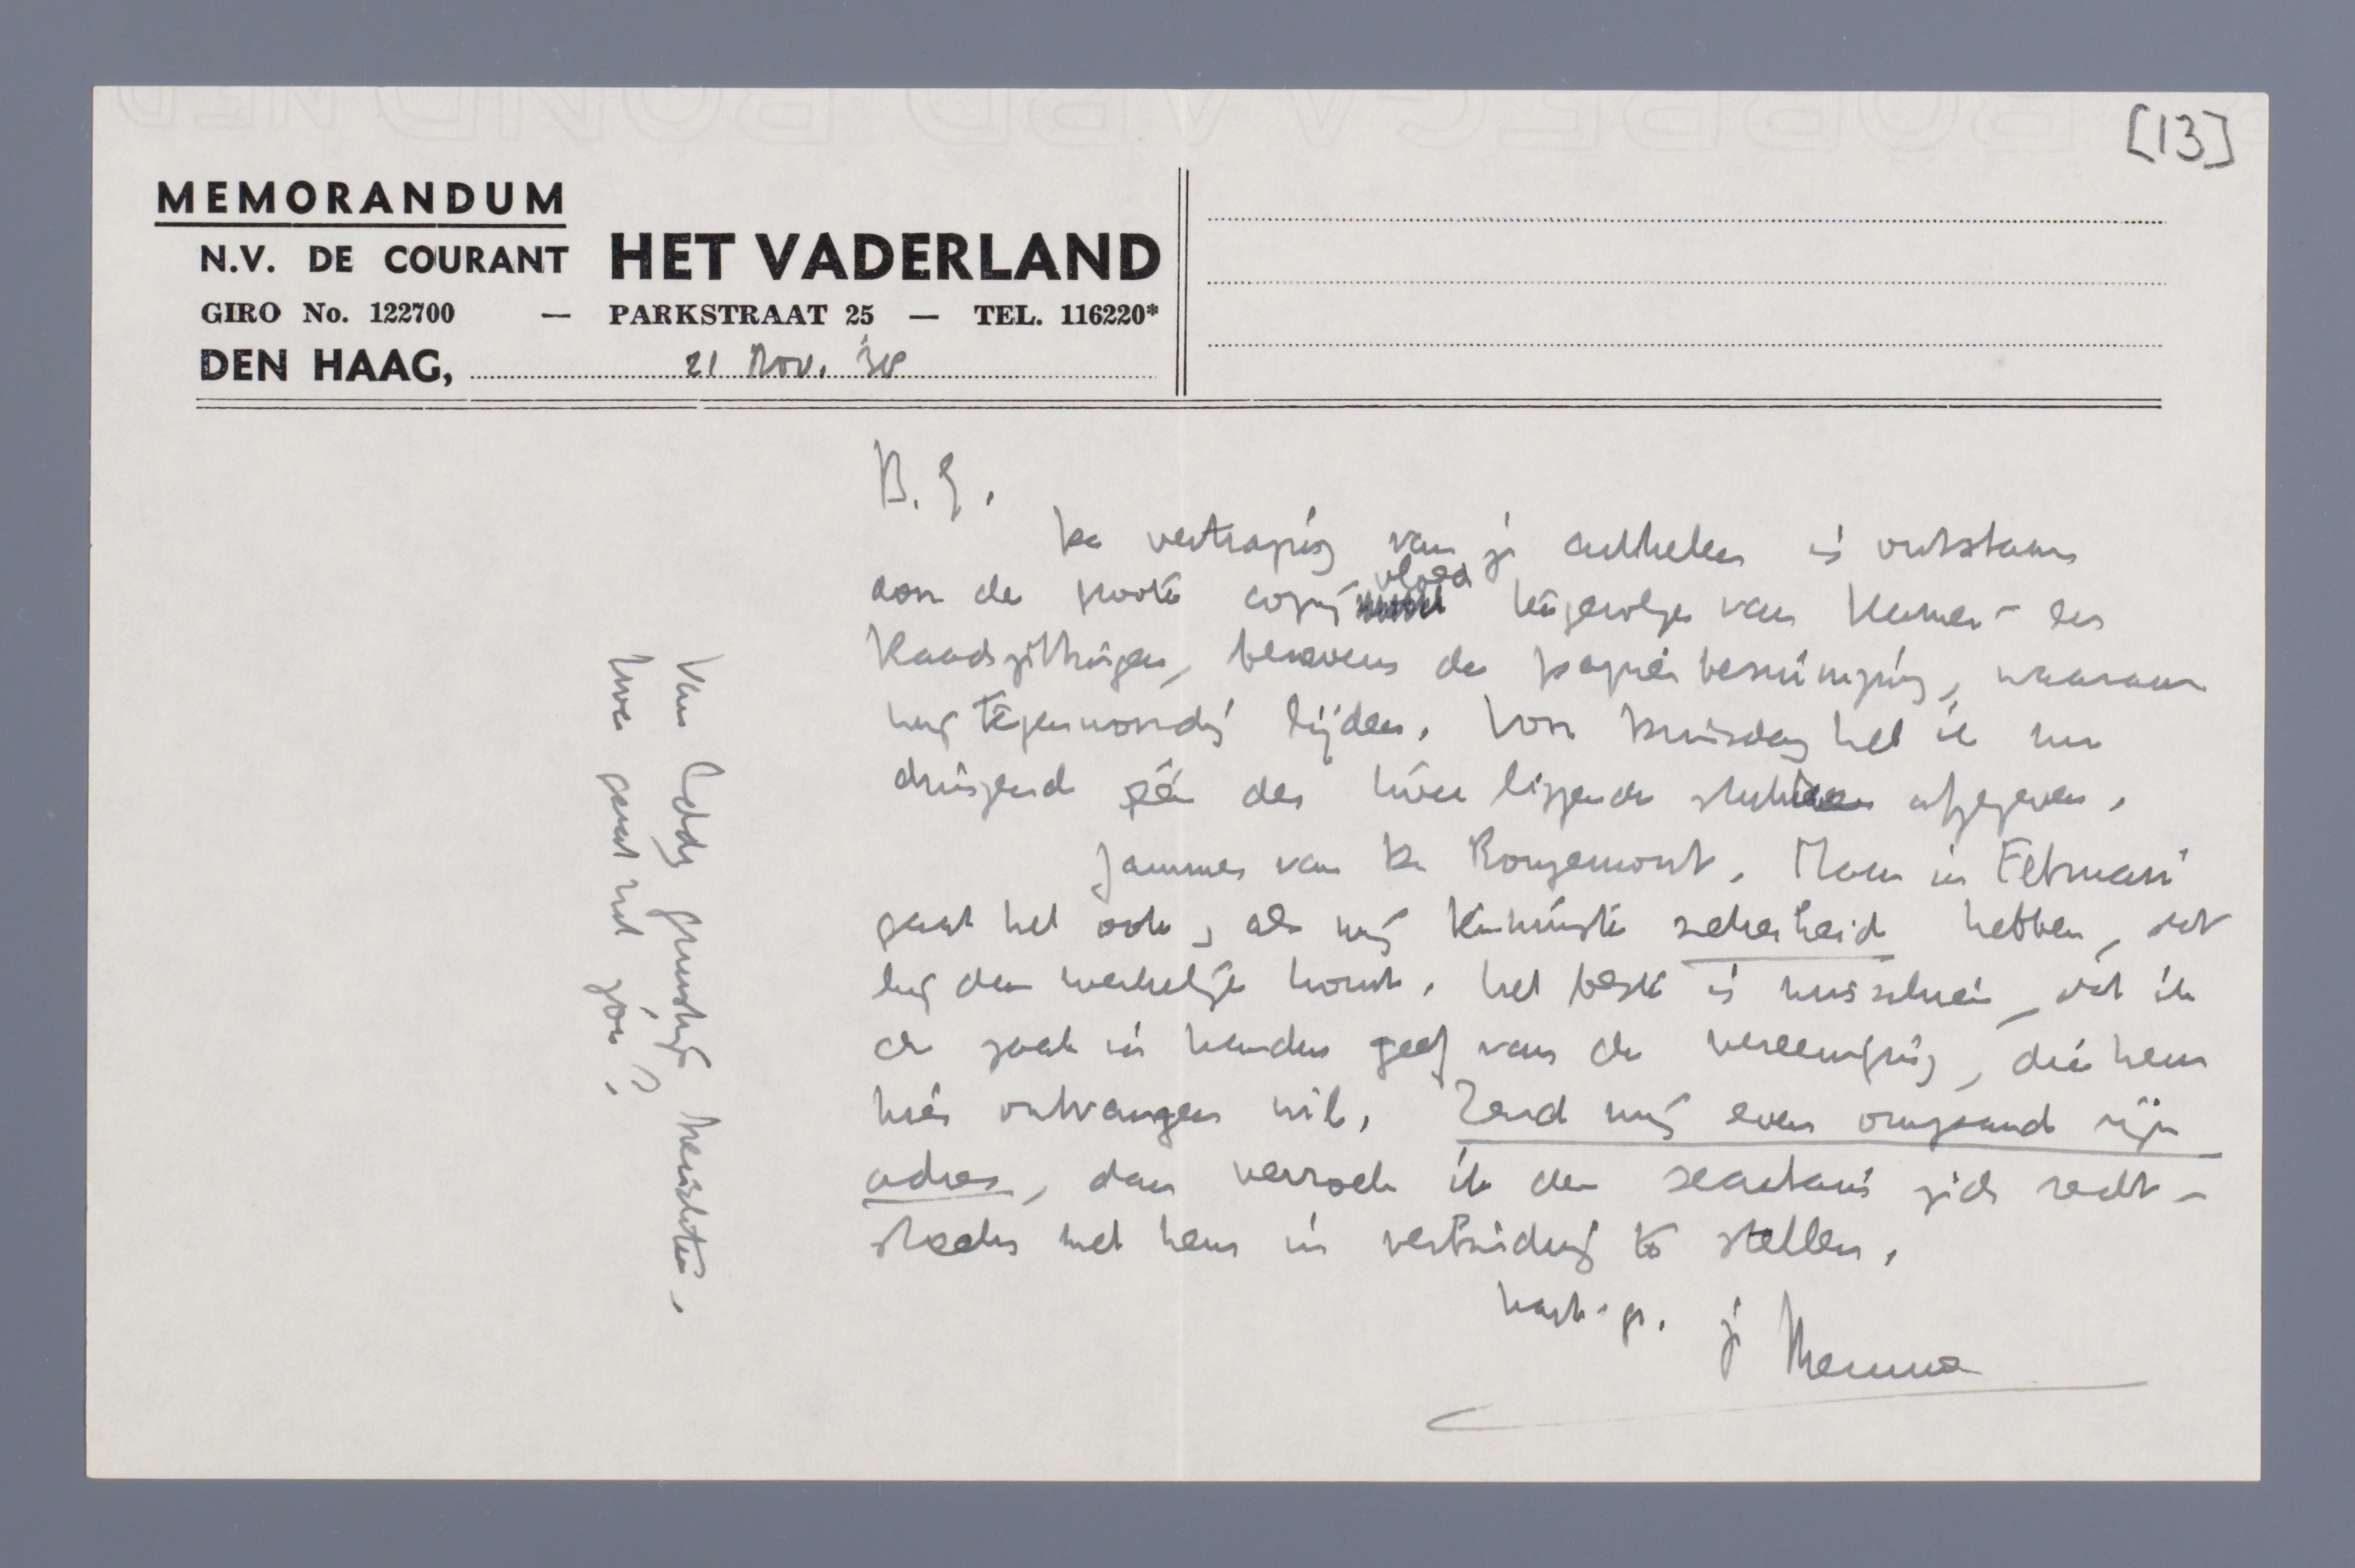 [13]
MEMORANDUM
N.V. DE COURANT HET VADERLAND
GIRO No. 122700 — PARKSTRAAT 25 — TEL. 116220*
DEN HAAG, 21 Nov. '38
B.G.
De vertraging van je artikelen is ontstaan
door de groote copij vloed tengevolge van Kamer- en
Raadszittingen, benevens de papierbezuiniging, waaraan
wij tegenwoordig lijden. Voor Dinsdag heb ik nu
dringend één der twee liggende stukken afgegeven.
Jammer van De Rougemont. Maar in Februari
gaat het ook, als wij tenminste zekerheid hebben, dat
hij dan werkelijk komt. Het beste is misschien, dat ik
de zaak in handen geef van de vereeniging, die hem
hier ontvangen wil. Zend mij even omgaand zijn
adres, dan verzoek ik den secretaris zich recht-
streeks met hem in verbinding te stellen.
hart. gr. je Menno
Van Eddy gunstige berichten.
Hoe gaat het jou?